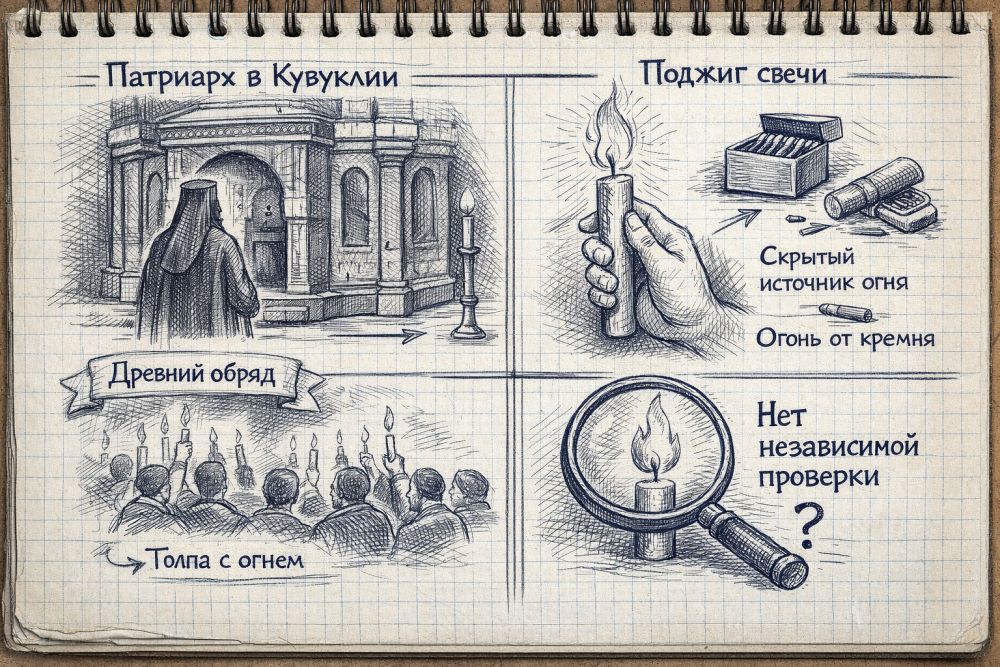 Патриарх в Кувуклии
Поджиг свечи
Скрытый
источник огня
Огонь от кремня
Древний обряд
Толпа с огнем
Нет
независимой
проверки
?